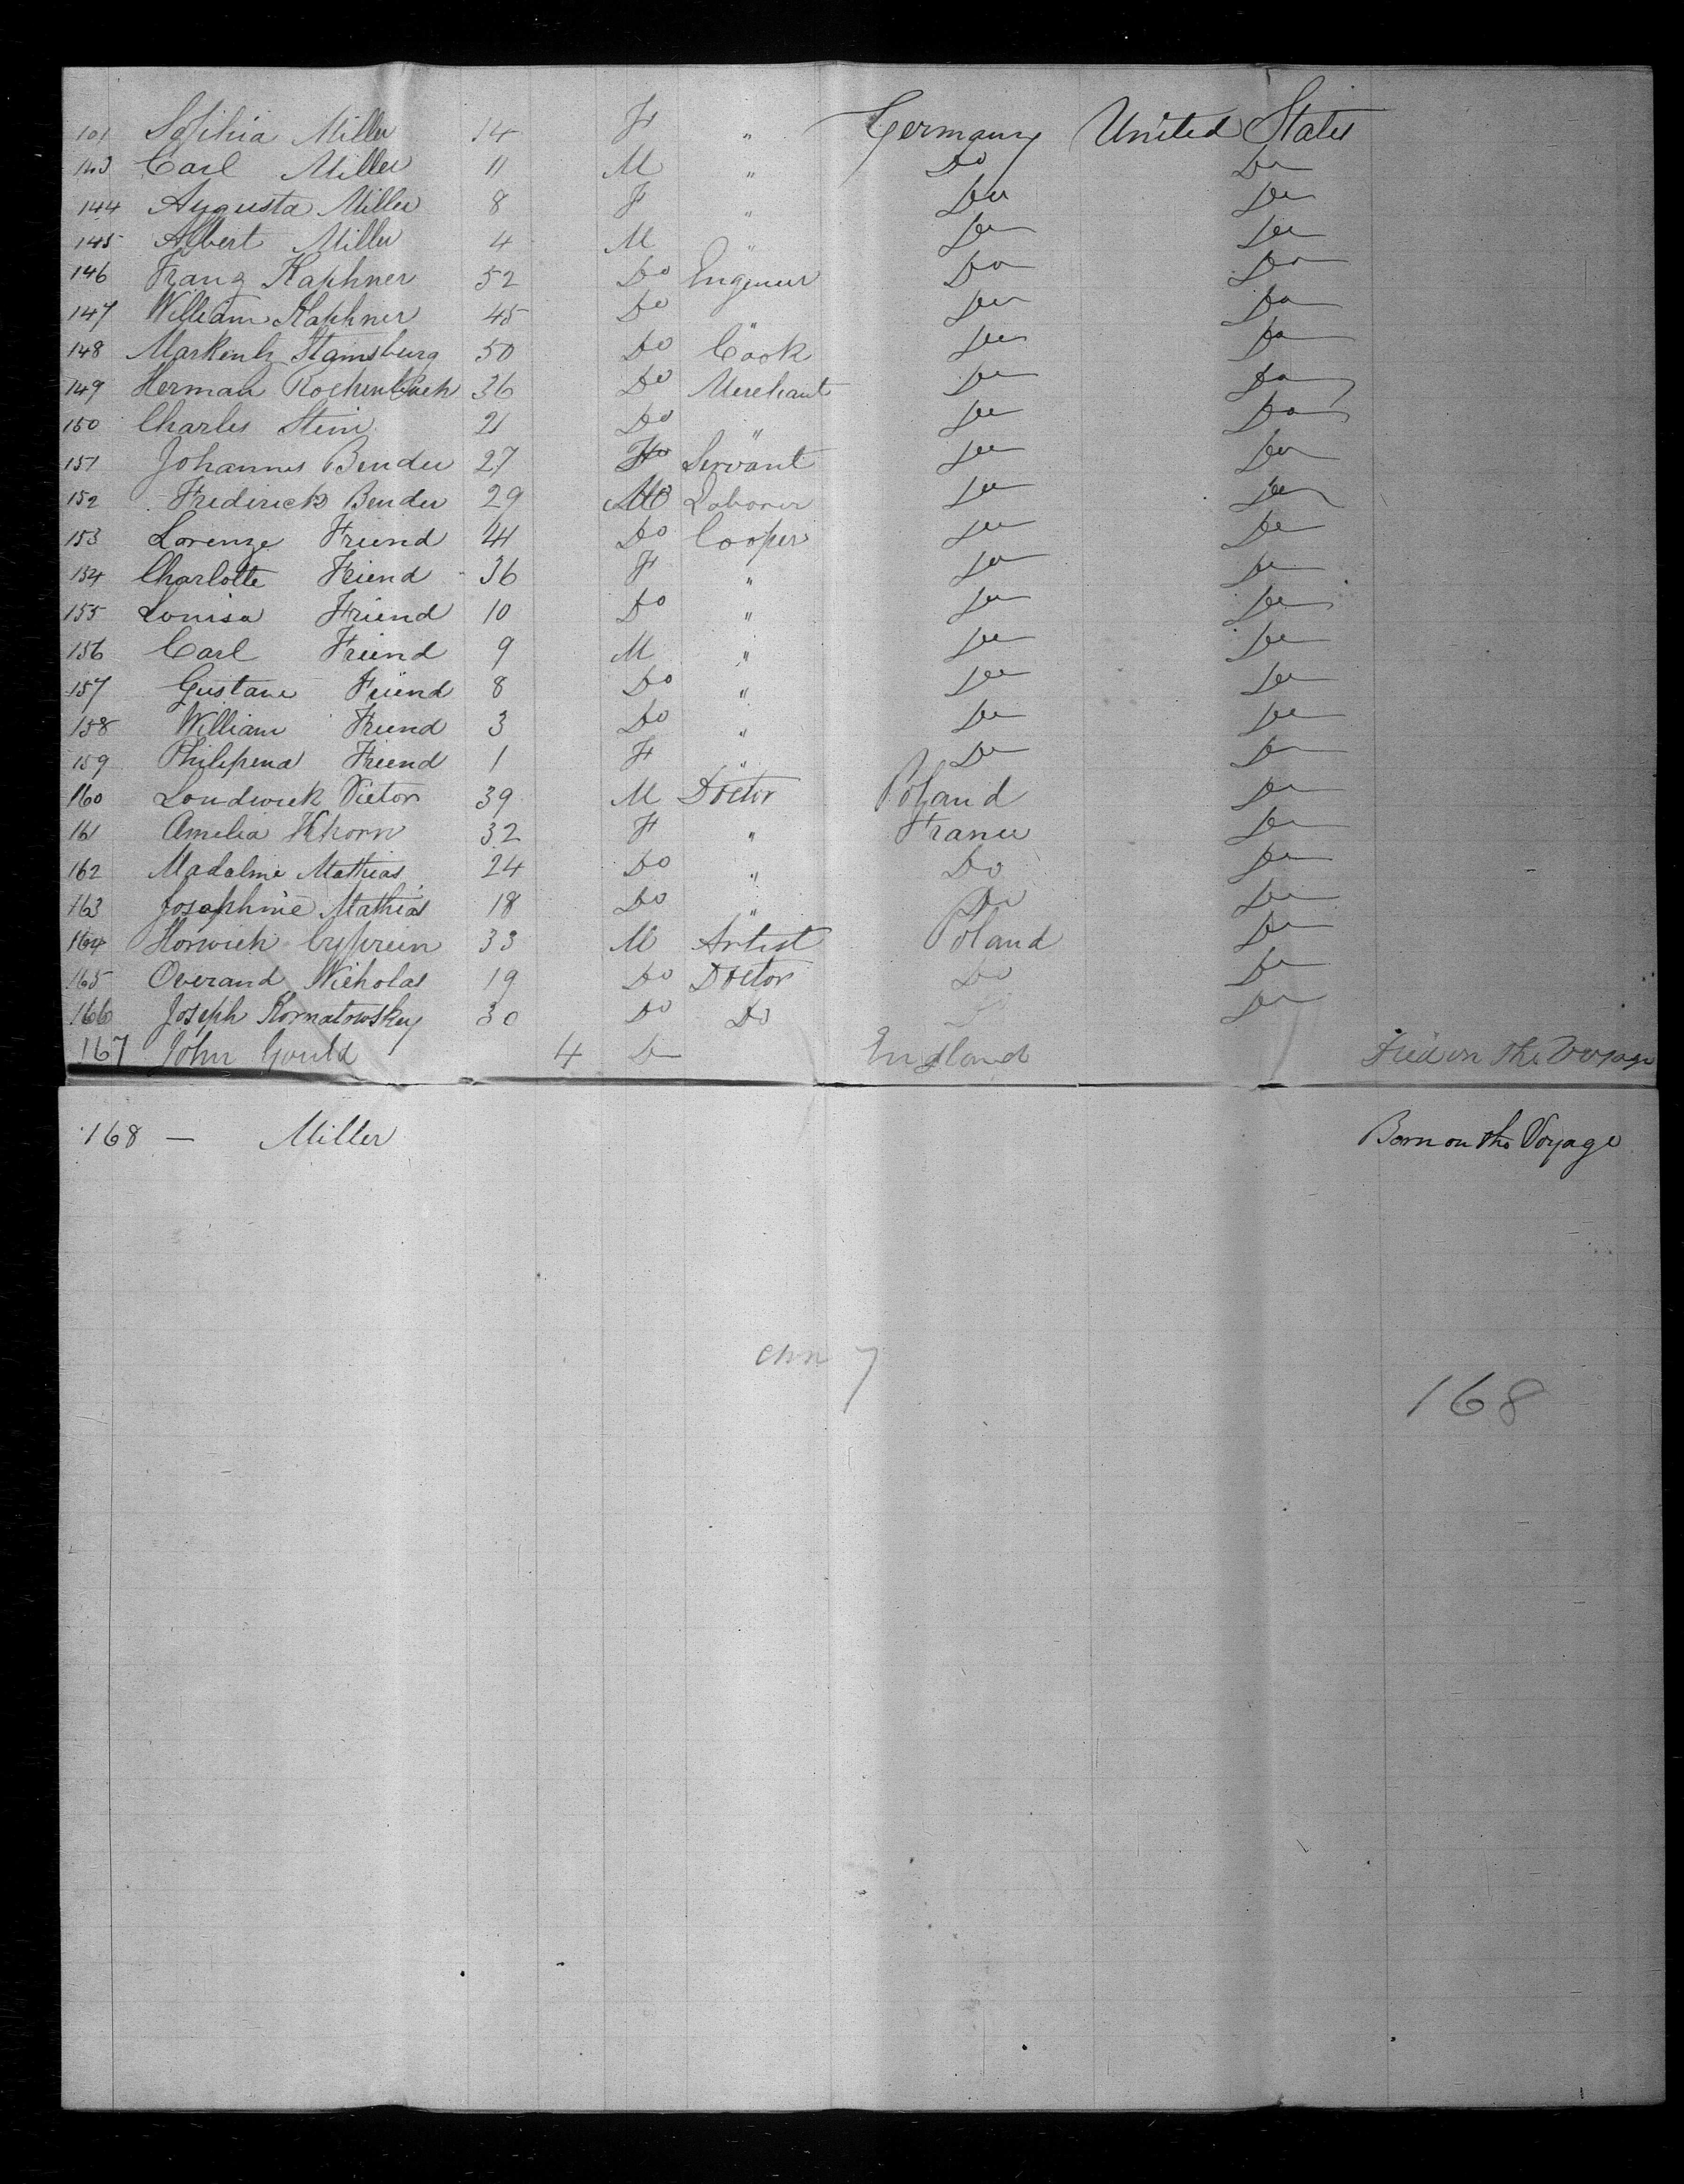 101 Sophia Miller 14 F " Germany United States
143 Carl Miller 11 M " Do Do
144 Augusta Miller 8 F " Do Do
145 Albert Miller 4 M " Do Do
146 Franz Kaphner 52 Do Engineer Do Do
147 William Kaphner 45 Do " Do Do
148 Stamsburg 50 Do Cook Do Do
149 Herman Rochenbach 36 Do Merchant Do Do
150 Charles Stein 21 Do " Do Do
151 Johannes Bender 27 F Servant Do Do
152 Frederick Bender 29 M Laborer Do Do
153 Lorenze Friend 41 Do Cooper Do Do
154 Charlotte Friend 36 F " Do Do
155 Louisa Friend 10 Do " Do Do
156 Carl Friend 9 M " Do Do
157 Gustave Friend 8 Do " Do Do
158 William Friend 3 Do " Do Do
159 Philipena Friend 1 F " Do Do
160 Loudwick Victor 39 M Doctor Poland Do
161 Amelia 32 F " France Do
162 Madaline Mathias 24 Do " Do Do
163 Josaphine Mathias 18 Do " Do Do
164 Horwich Cyprein 33 M Artist Poland Do
165 Overand Nicholas 19 Do Doctor Do Do
166 Joseph Kornatowskey 30 Do Do Do Do
167 John Gould 4 Do England Died on the Voyage
168 — Miller Born on the Voyage
7
168